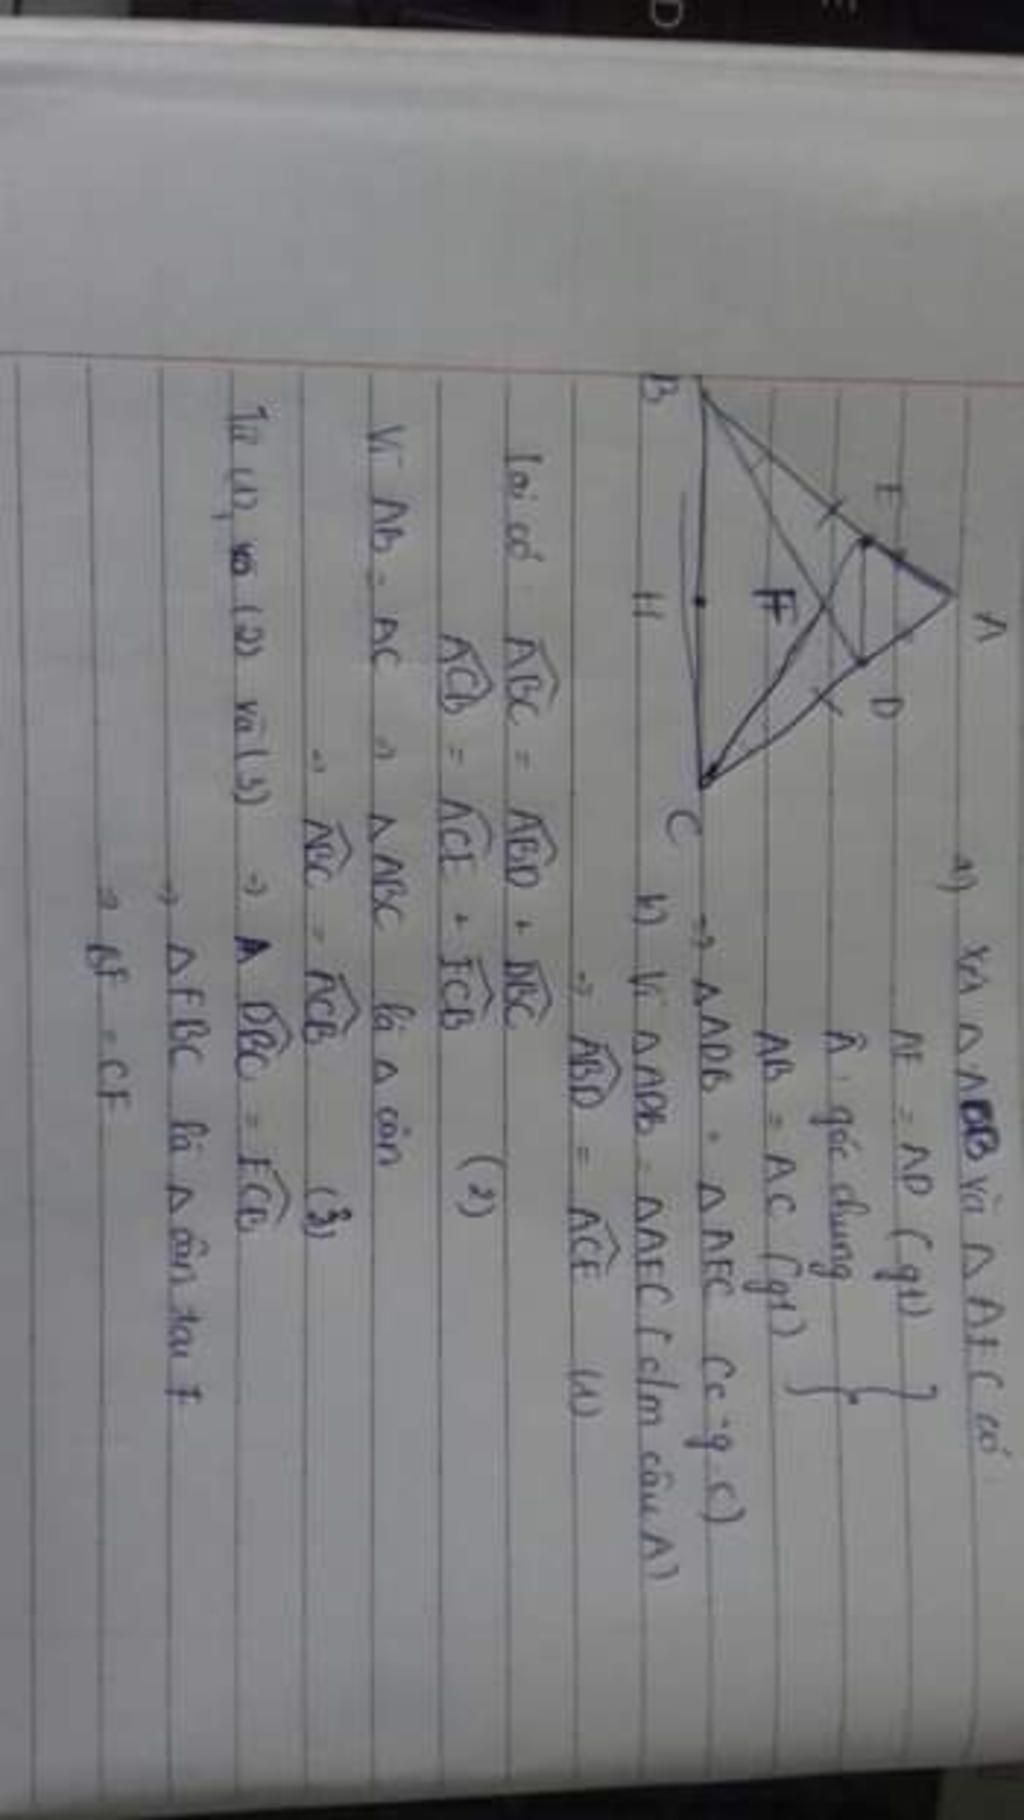 A
E
D
F
B
H
C
a) Xét △ ADB và △ AEC có
AE = AD (gt)
Â : góc chung
AB = AC (gt)
=> △ADB = △AEC (c.g.c)
b) Vì △ADB = △AEC (c/m câu A)
=> ABD = ACE (1)
Lại có ABC = ABD + DBC
ACB = ACE + ECB (2)
Vì AB = AC => △ABC là △ cân
=> ABC = ACB (3)
Từ (1) và (2) và (3) => DBC = ECB
=> △FBC là △ cân tại F
=> BF = CF